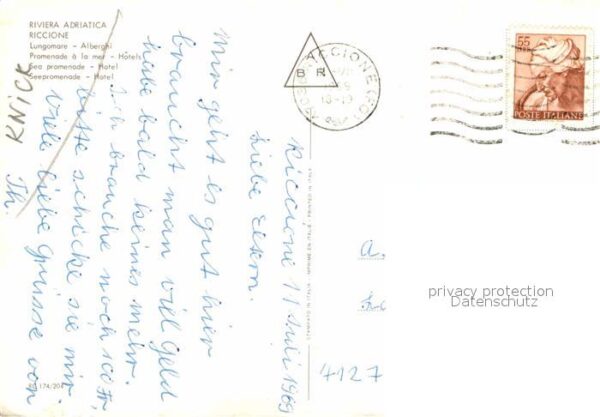 RIVIERA ADRIATICA
RICCIONE
Lungomare - Alberghi
Promenade à la mer - Hôtels
Sea promenade - Hotel
Seepromenade - Hotel
KNICK
Riccione 11 Juli 1969
Liebe Eltern.
Mir geht es gut hier
braucht man viel Geld
habe bald keines mehr.
Ich brauche noch 100 fr
bitte schicke sie mir
viele liebe Grüsse von
Th.
RE 174/204
STAMPATO IN ITALIA - IMPRIMÉ EN ITALIE - PRINTED IN ITALY
B R
RICCIONE (FO)
18-19
55
LIRE
POSTE ITALIANE
a.
4127
privacy protection
Datenschutz